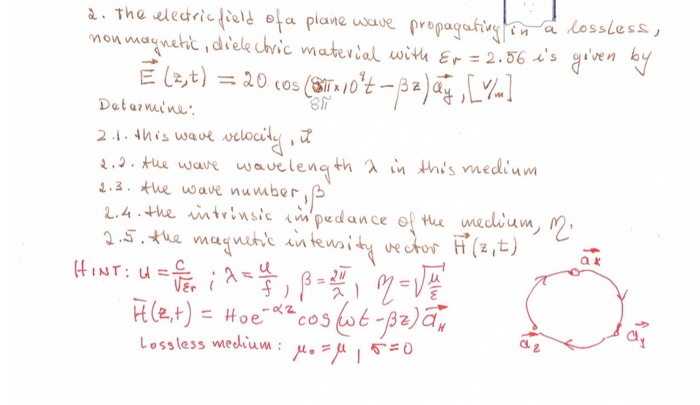 2. The electric field of a plane wave propagating in a lossless,
nonmagnetic, dielectric material with εr = 2.56 is given by
E⃗ (z,t) = 20 cos (8π×10⁹t − βz) a⃗y, [V/m]
8π
Determine:
2.1. this wave velocity, u⃗
2.2. the wave wavelength λ in this medium
2.3. the wave number, β
2.4. the intrinsic impedance of the medium, η.
2.5. the magnetic intensity vector H⃗ (z,t)
HINT: u = c/√εr ; λ = u/f, β = 2π/λ, η = √(μ/ε)
H⃗(z,t) = H₀e^(-αz) cos (ωt − βz) a⃗H
Lossless medium: μ₀ = μ, σ = 0
a⃗x
a⃗y
a⃗z